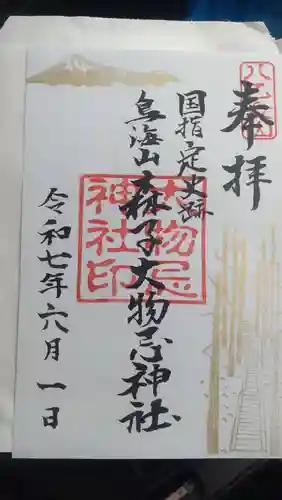 奉拝
国指定史跡
鳥海山森子大物忌神社
大物忌
神社印
令和七年六月一日